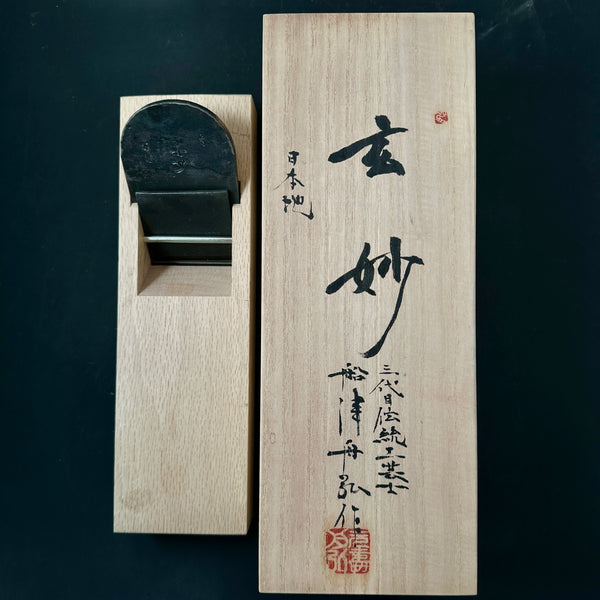 玄妙
日本鉋
三代目伝統工芸士
船津舟弘作